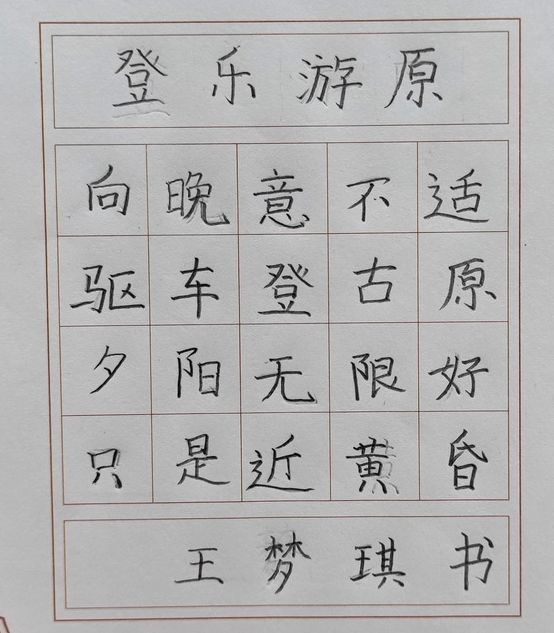 登乐游原
向晚意不适
驱车登古原
夕阳无限好
只是近黄昏
王梦琪书